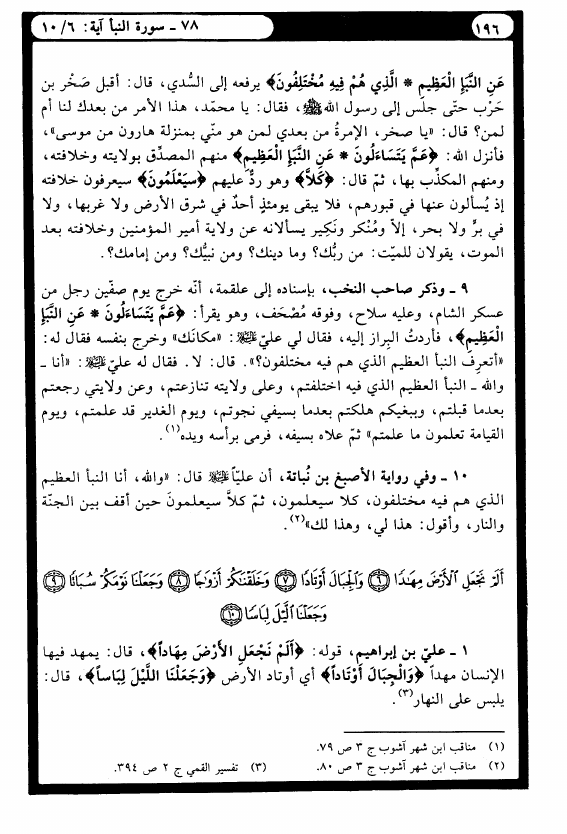 ١٩٦
٧٨ ـ سورة النبأ آية: ٦/ ١٠
عَنِ النَّبَإِ الْعَظِيمِ * الَّذِي هُمْ فِيهِ مُخْتَلِفُونَ﴾ يرفعه إلى السُّدي، قال: أقبل صَخْر بن
حَرْب حتّى جلس إلى رسول الله ﷺ، فقال: يا محمد، هذا الأمر من بعدك لنا أم
لمن؟ قال: «يا صخر، الإمرةُ من بعدي لمن هو منّي بمنزلة هارون من موسى»،
فأنزل الله: ﴿عَمَّ يَتَسَاءَلُونَ * عَنِ النَّبَإِ الْعَظِيمِ﴾ منهم المصدِّق بولايته وخلافته،
ومنهم المكذِّب بها، ثمّ قال: ﴿كَلاَّ﴾ وهو ردٌّ عليهم ﴿سَيَعْلَمُونَ﴾ سيعرفون خلافته
إذ يُسألون عنها في قبورهم، فلا يبقى يومئذٍ أحدٌ في شرق الأرض ولا غربها، ولا
في برٍّ ولا بحر، إلاّ ومُنْكر ونَكِير يسألانه عن ولاية أمير المؤمنين وخلافته بعد
الموت، يقولان للميّت: من ربُّك؟ وما دينك؟ ومن نبيُّك؟ ومن إمامك؟.
٩ ـ وذكر صاحب النخب، بإسناده إلى علقمة، أنّه خرج يوم صفّين رجل من
عسكر الشام، وعليه سلاح، وفوقه مُصْحَف، وهو يقرأ: ﴿عَمَّ يَتَسَاءَلُونَ * عَنِ النَّبَإِ
الْعَظِيمِ﴾، فأردتُ البِراز إليه، فقال لي عليّ عليه السلام: «مكانَك» وخرج بنفسه فقال له:
«أتعرِف النبأ العظيم الذي هم فيه مختلفون؟». قال: لا. فقال له عليّ عليه السلام: «أنا ـ
والله ـ النبأ العظيم الذي فيه اختلفتم، وعلى ولايته تنازعتم، وعن ولايتي رجعتم
بعدما قبلتم، وببغيكم هلكتم بعدما بسيفي نجوتم، ويوم الغدير قد علمتم، ويوم
القيامة تعلمون ما علمتم» ثمّ علاه بسيفه، فرمى برأسه ويده(١).
١٠ ـ وفي رواية الأصبغ بن نُباتة، أن عليّاً عليه السلام قال: «والله، أنا النبأ العظيم
الذي هم فيه مختلفون، كلا سيعلمون، ثمّ كلاَّ سيعلمونَ حين أقف بين الجنّة
والنار، وأقول: هذا لي، وهذا لك»(٢).
أَلَمْ نَجْعَلِ ٱلْأَرْضَ مِهَٰدًا ٦ وَٱلْجِبَالَ أَوْتَادًا ٧ وَخَلَقْنَٰكُمْ أَزْوَٰجًا ٨ وَجَعَلْنَا نَوْمَكُمْ سُبَاتًا ٩
وَجَعَلْنَا ٱلَّيْلَ لِبَاسًا ١٠
١ ـ عليّ بن إبراهيم، قوله: ﴿أَلَمْ نَجْعَلِ الأَرْضَ مِهَاداً﴾، قال: يمهد فيها
الإنسان مهداً ﴿وَالْجِبَالَ أَوْتَاداً﴾ أي أوتاد الأرض ﴿وَجَعَلْنَا اللَّيْلَ لِبَاساً﴾، قال:
يلبس على النهار(٣).
(١) مناقب ابن شهر آشوب ج ٣ ص ٧٩.
(٢) مناقب ابن شهر آشوب ج ٣ ص ٨٠. (٣) تفسير القمي ج ٢ ص ٣٩٤.